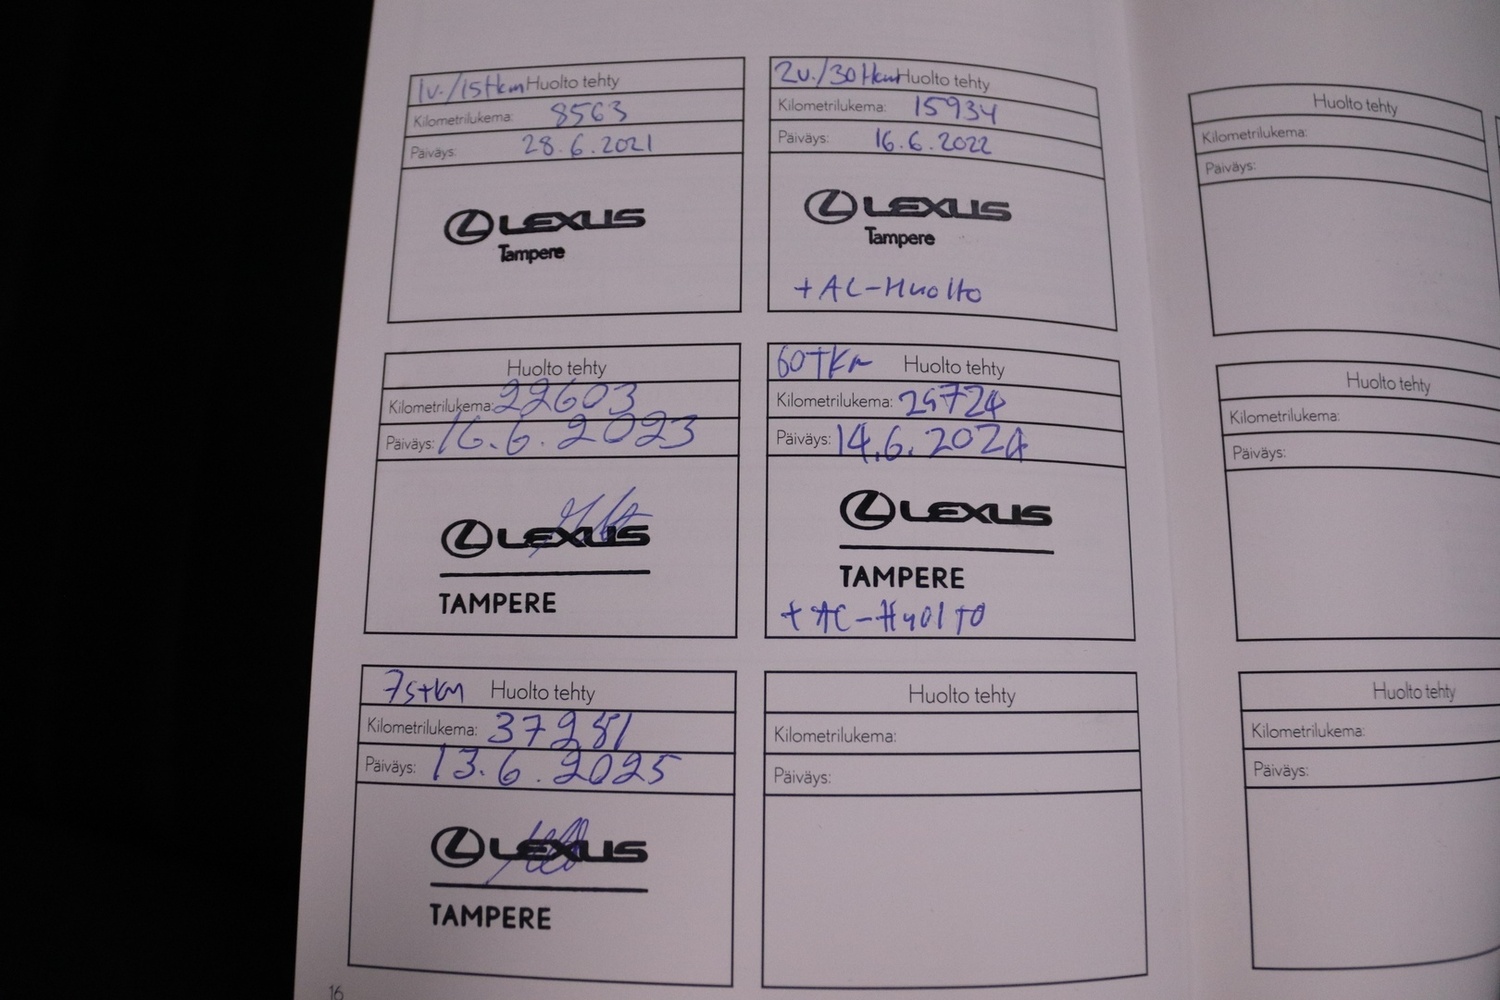 1v./15tkm Huolto tehty
Kilometrilukema: 8563
Päiväys: 28.6.2021
LEXUS
Tampere
2v./30tkm Huolto tehty
Kilometrilukema: 15934
Päiväys: 16.6.2022
LEXUS
Tampere
+ AC-Huolto
Huolto tehty
Kilometrilukema: 22603
Päiväys: 16.6.2023
LEXUS
TAMPERE
60TKm Huolto tehty
Kilometrilukema: 29724
Päiväys: 14.6.2024
LEXUS
TAMPERE
+ AC-HuolTO
75tkm Huolto tehty
Kilometrilukema:
Päiväys: 13.6.2025
LEXUS
TAMPERE
Huolto tehty
Kilometrilukema:
Päiväys:
16
Huolto tehty
Kilometrilukema:
Päiväys:
Huolto tehty
Kilometrilukema:
Päiväys:
Huolto tehty
Kilometrilukema:
Päiväys: